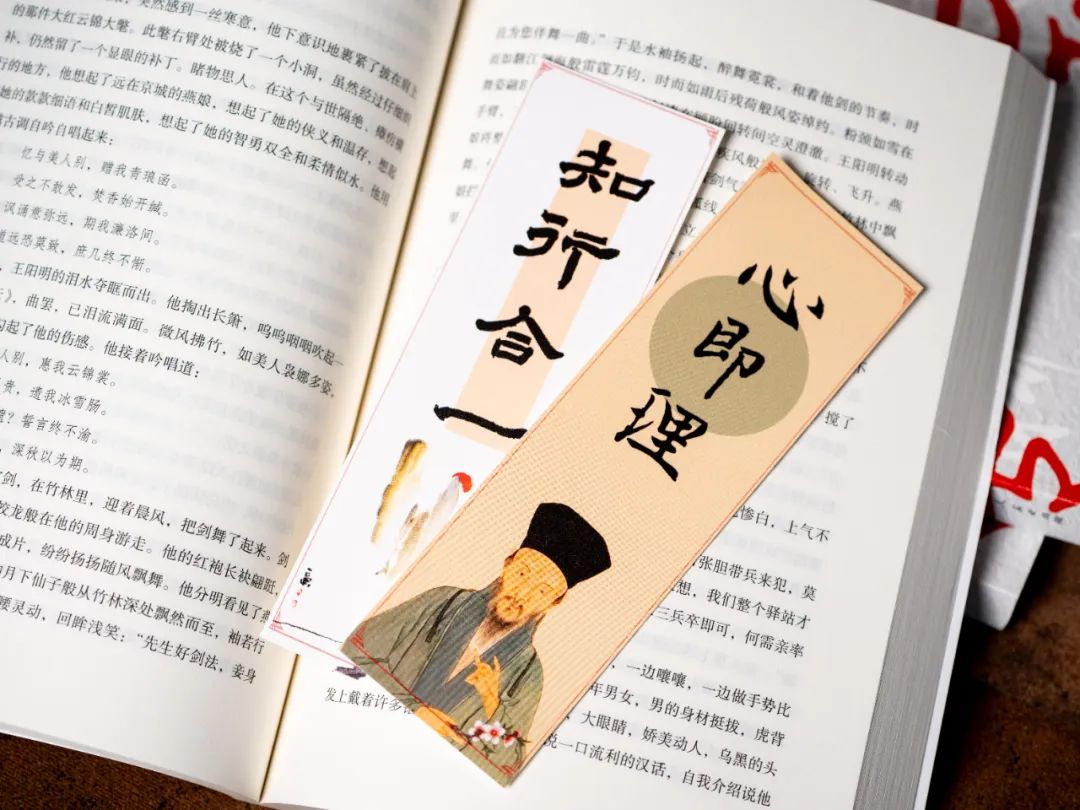 然感到一丝寒意，他下意识地裹紧了披在肩上
的那件大红云锦大氅。此氅右臂处被烧了一个小洞，虽然经过仔细的
补，仍然留了一个显眼的补丁。睹物思人。在这个与世隔绝、
行的地方，他想起了远在京城的燕娘，想起了她的侠义和温存，想起
她的款款细语和白皙肌肤，想起了她的智勇双全和柔情似水。他用
古调自吟自唱起来：
忆与美人别，赠我青琅函。
受之不敢发，焚香始开缄。
讽诵意弥远，期我濂洛间。
道远恐莫致，庶几终不惭。
，王阳明的泪水夺眶而出。他掏出长箫，呜呜咽咽吹起一
》，曲罢，已泪流满面。微风拂竹，如美人袅娜多姿，
勾起了他的伤感。他接着吟唱道：
人别，惠我云锦裳。
贵，遗我冰雪肠。
？誓言终不渝。
，深秋以为期。
剑，在竹林里，迎着晨风，把剑舞了起来。剑
蛟龙般在他的周身游走。他的红袍长袂翩跹，
成片，纷纷扬扬随风飘舞。他分明看见了燕
月下仙子般从竹林深处飘然而至，袖若行
腰灵动，回眸浅笑：“先生好剑法，妾身
且为您伴舞一曲。”于是水袖扬起，醉舞霓裳，和着他剑的节奏，时
而如翻江海般雷霆万钧，时而如雨后残荷般风姿绰约。粉颈如雪在
舞姿翩
回转间空灵澄澈。王阳明转动
手臂，
疾风般
旋转、飞升。燕
娘
剑气
林中飘
舞。
弧线
知行合一
心即理
搅了
惨白，上气不
张胆带兵来犯，莫
想，我们整个驿站才
三兵卒即可，何需亲率
，一边嚷嚷，一边做手势比
年男女，男的身材挺拔，虎背
，大眼睛，娇美动人，乌黑的头
说一口流利的汉话，自我介绍说他
发上戴着许多